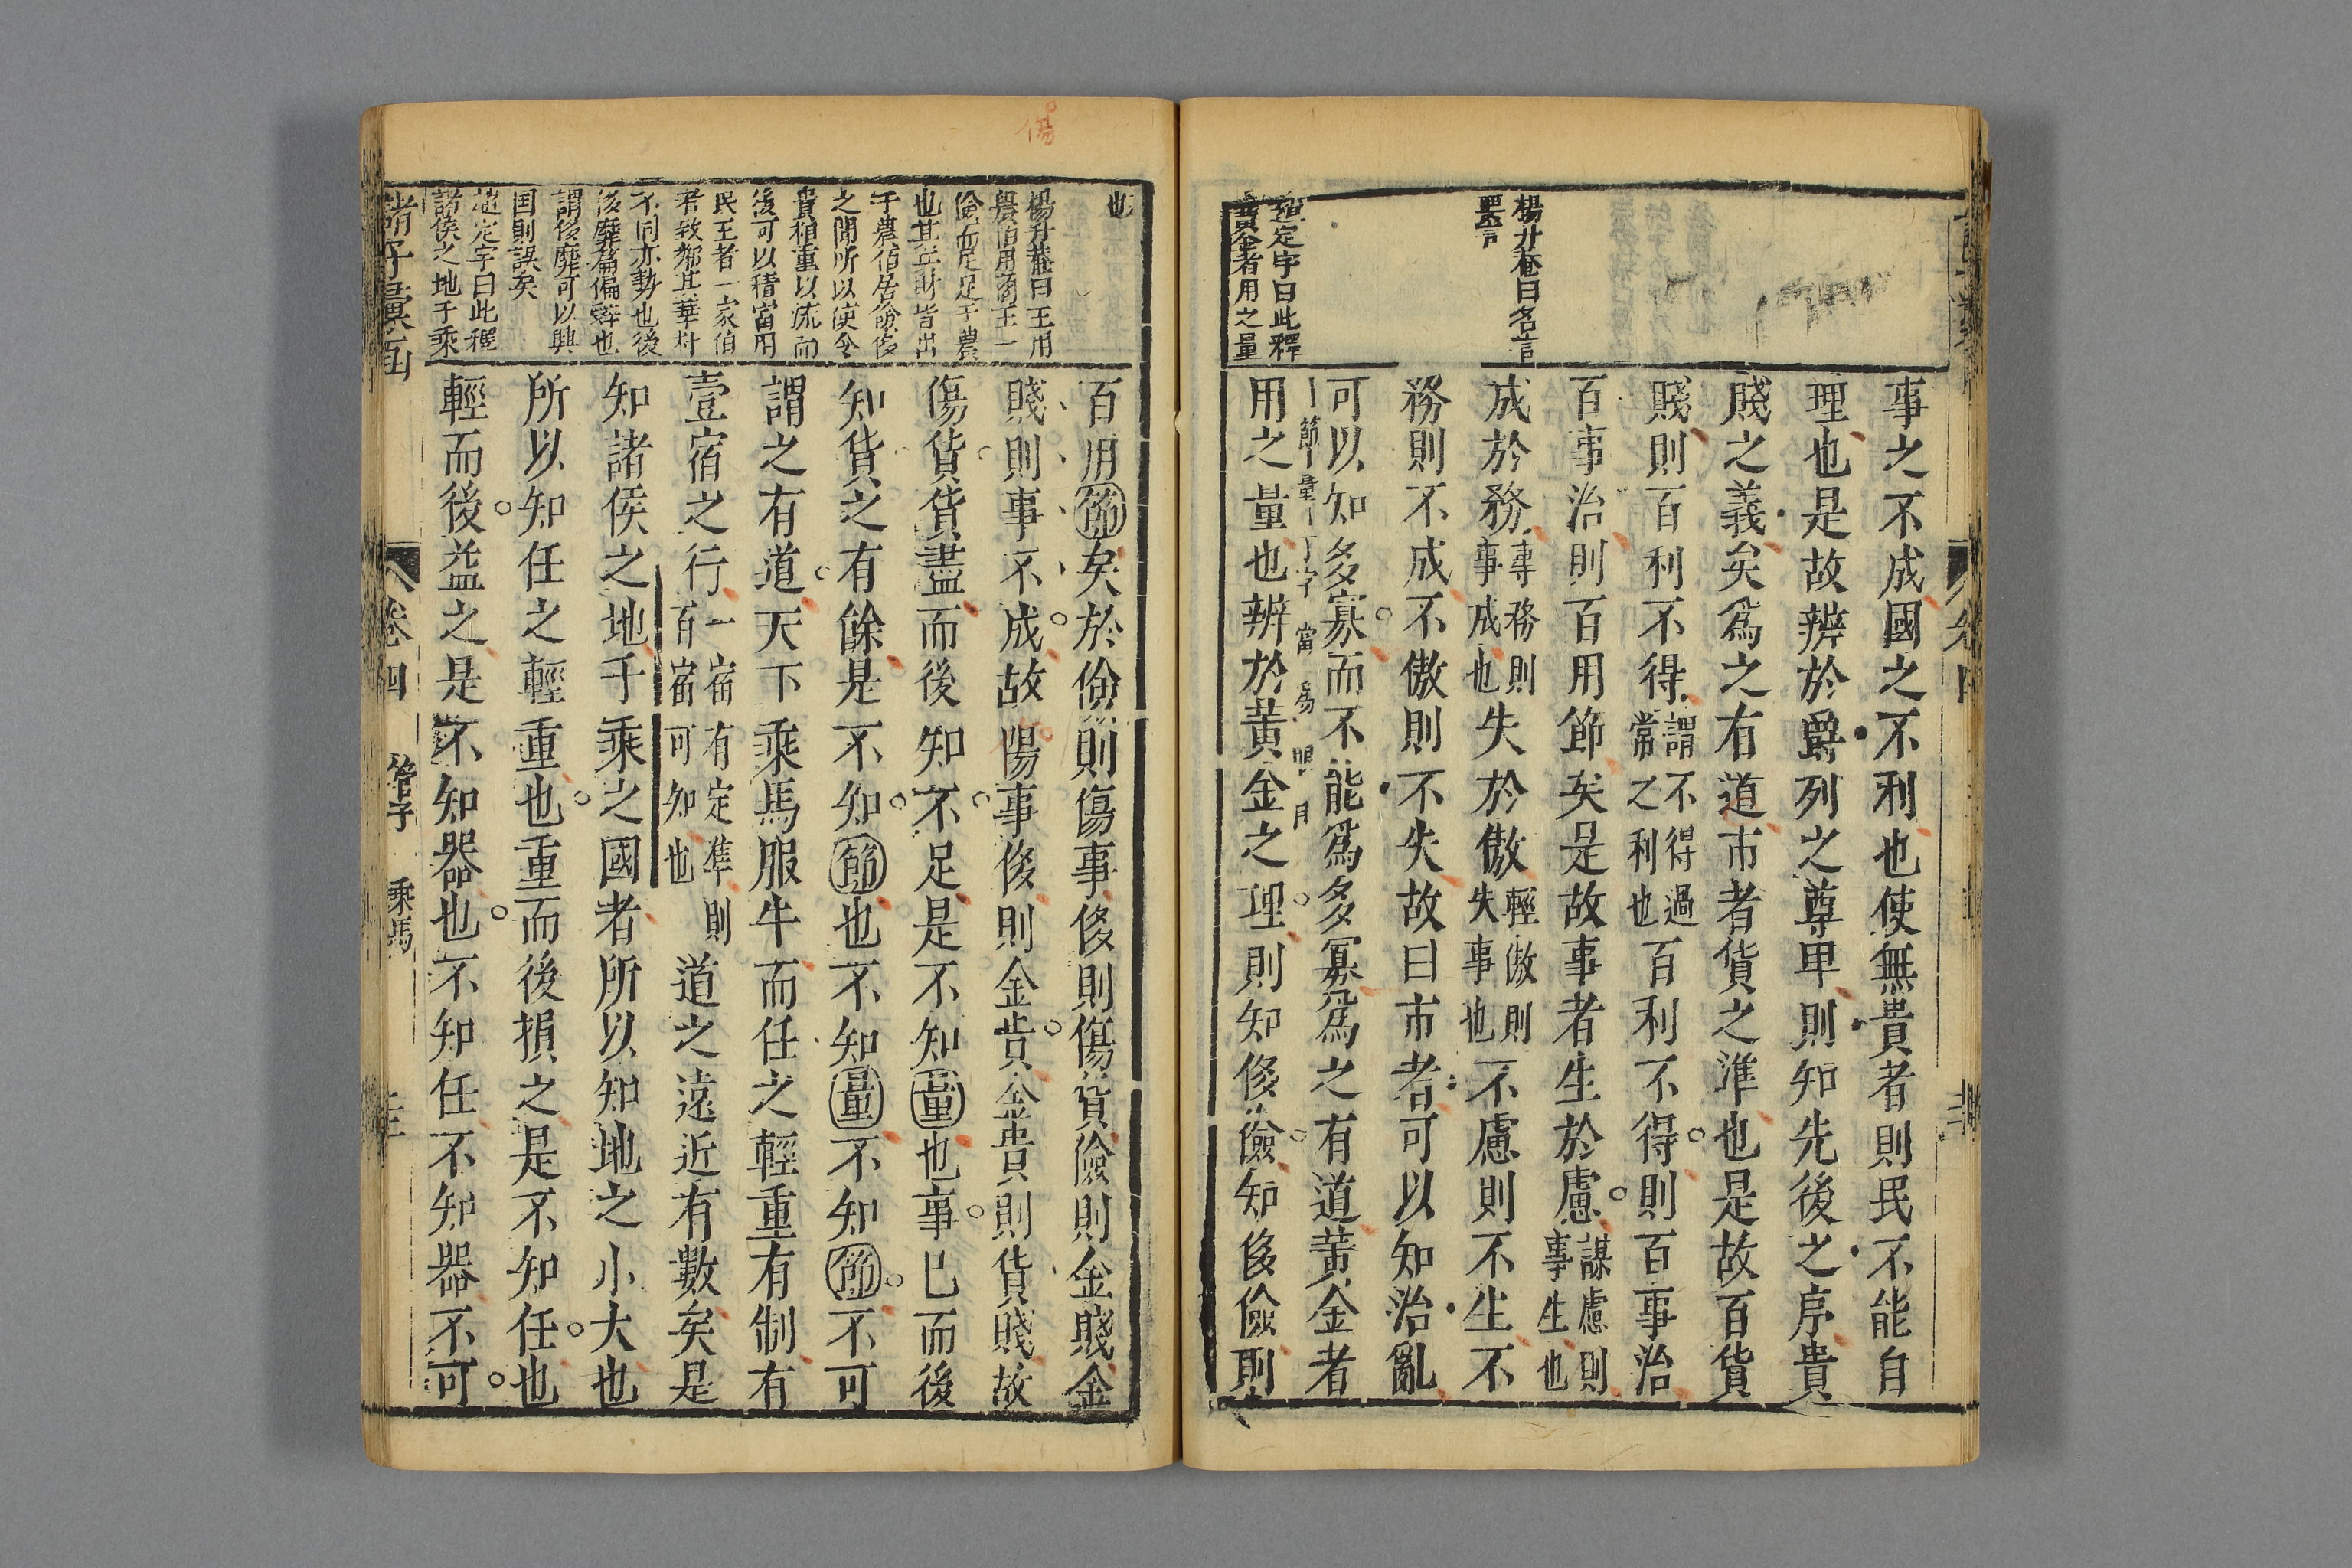 楊升菴曰名言
趙定宇曰此釋
黃金者用之量
事之不成國之不利也使無貴者則民不能自
理也是故辨於爵列之尊卑則知先後之序貴
賤之義矣爲之有道市者貨之準也是故百貨
賤則百利不得謂不得過常之利也百利不得則百事治
百事治則百用節矣是故事者生於慮謀慮則事生也
成於務專務則事成也失於傲輕傲則失事也不慮則不生不
務則不成不傲則不失故曰市者可以知治亂
可以知多寡而不能爲多寡爲之有道黃金者
節量二字當爲眼目
用之量也辨於黃金之理則知侈儉知侈儉則
也
楊升菴曰王用
農伯用商王一
儉而足足于農
也其並財皆出
于農伯居儉侈
之間所以使令
貴相重以流而
後可以積富用
民王者一家伯
者敦鄰其華朴
不同亦勢也後
後靡篇偏辭也
謂侈靡可以興
国則誤矣
趙定宇曰此釋
諸侯之地千乘
傷
百用節矣於儉則傷事侈則傷貨儉則金賤金
賤則事不成故陽事侈則金貴金貴則貨賤故
傷貨貨盡而後知不足是不知量也事已而後
知貨之有餘是不知節也不知量不知節不可
謂之有道天下乘馬服牛而任之輕重有制有
壹宿之行一宿有定準則百宿可知也道之遠近有數矣是
知諸侯之地千乘之國者所以知地之小大也
所以知任之輕重也重而後損之是不知任也
輕而後益之是不知器也不知任不知器不可
諸子彙函
卷四
管子
乘馬